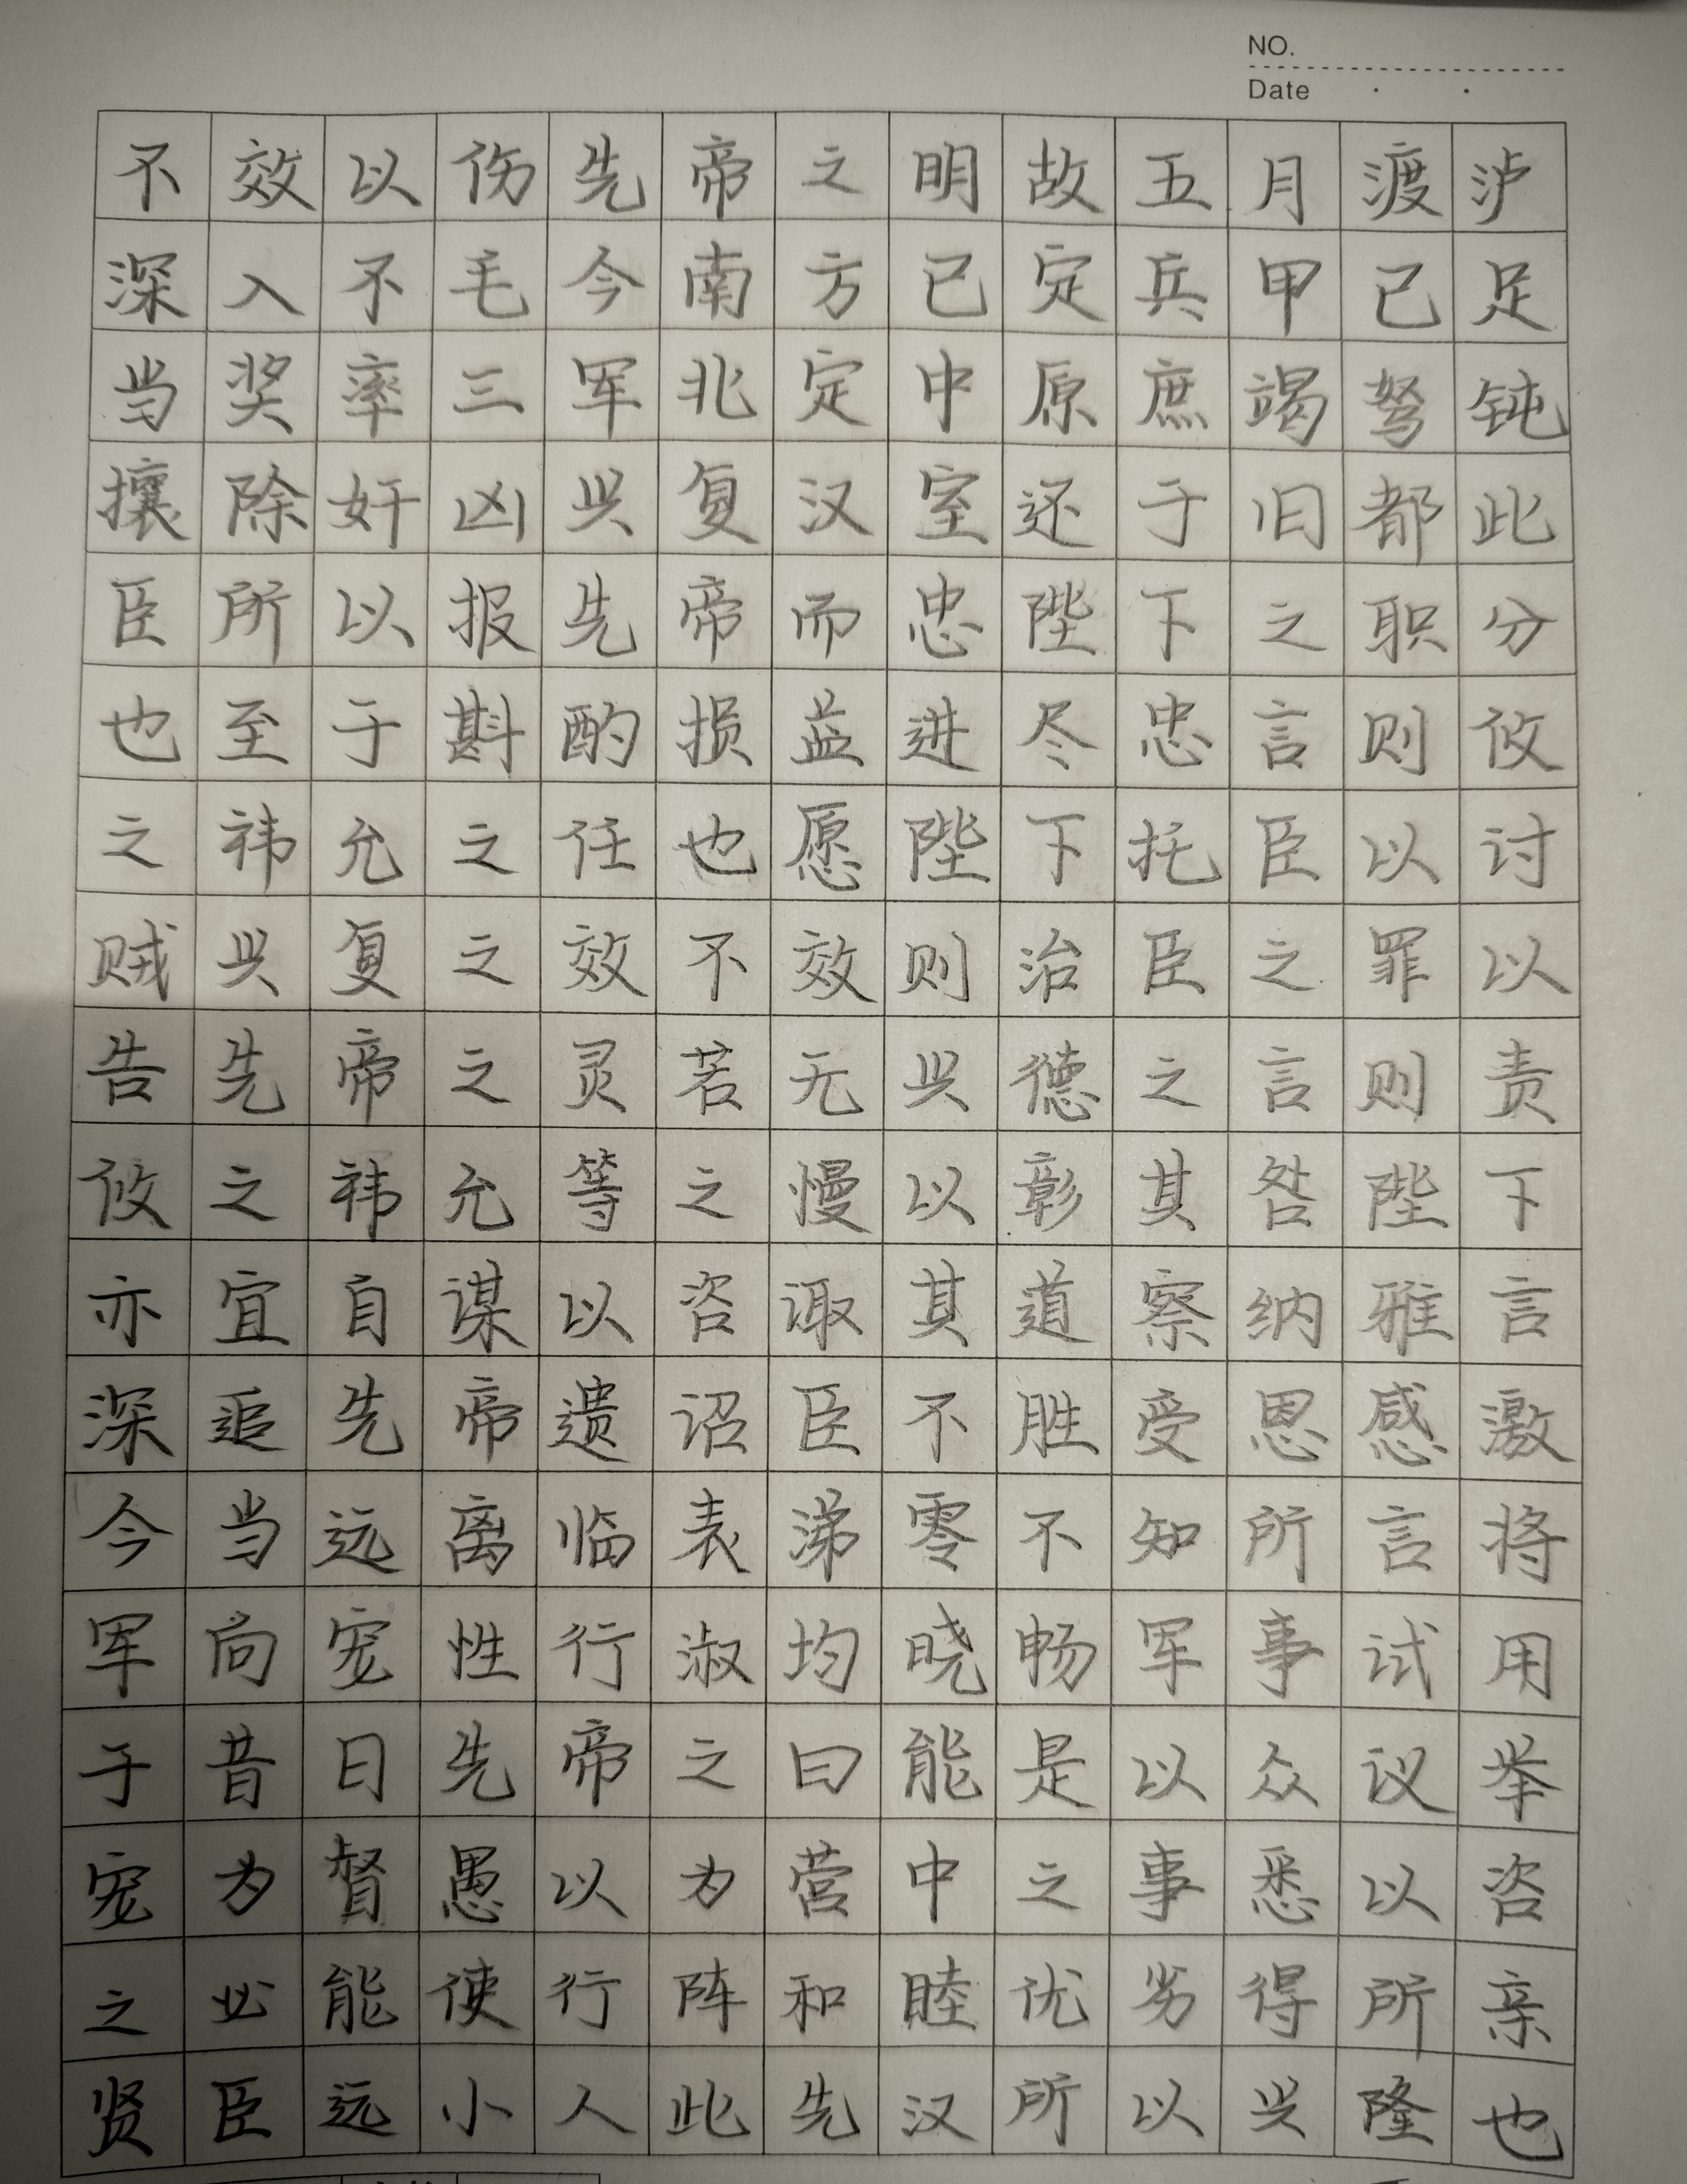 NO.
Date
不效以伤先帝之明故五月渡泸
深入不毛今南方已定兵甲已足
当奖率三军北定中原庶竭驽钝
攘除奸凶兴复汉室还于旧都此
臣所以报先帝而忠陛下之职分
也至于斟酌损益进尽忠言则攸
之祎允之任也愿陛下托臣以讨
贼兴复之效不效则治臣之罪以
告先帝之灵若无兴德之言则责
攸之祎允等之慢以彰其咎陛下
亦宜自谋以咨诹其道察纳雅言
深追先帝遗诏臣不胜受恩感激
今当远离临表涕零不知所言将
军向宠性行淑均晓畅军事试用
于昔日先帝之曰能是以众议举
宠为督愚以为营中之事悉以咨
之必能使行阵和睦优劣得所亲
贤臣远小人此先汉所以兴隆也